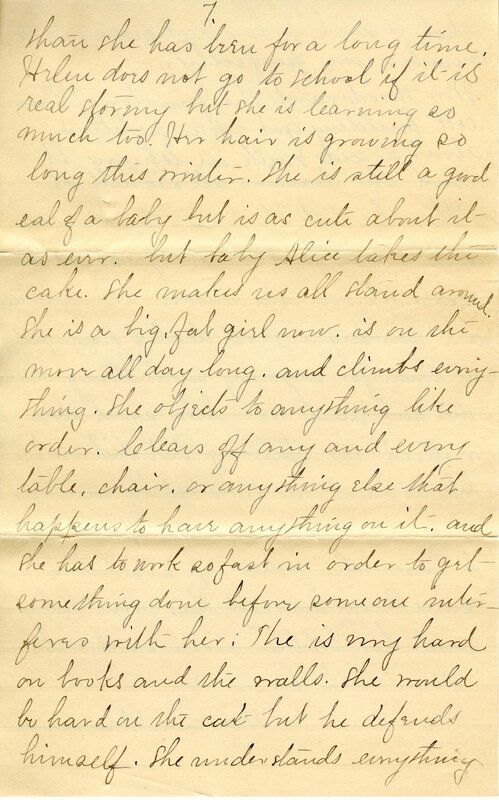 7.
than she has been for a long time.
Helen does not go to school if it is
real stormy but she is learning so
much too. Her hair is growing so
long this winter. She is still a good
eal of a baby but is as cute about it
as ever. but baby Alice takes the
cake. She makes us all stand around.
She is a big, fat girl now. is on the
move all day long. and climbs every-
thing. She objects to anything like
order. Clears off any and every
table, chair, or anything else that
happens to have anything on it. and
she has to work so fast in order to get
something done before someone inter
feres with her. She is very hard
on books and the walls. She would
be hard on the cat but he defends
himself. She understands everything